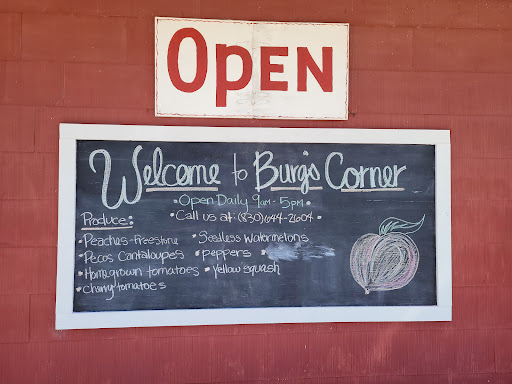 OpEN
Welcome to Burg's Corner
• Open Daily 9am - 5pm •
• Call us at: (830)644-2604 •
Produce:
• Peaches - Freestone • Seedless Watermelons
• Pecos Cantaloupes • peppers •
• Homegrown tomatoes • Yellow squash
• cherry tomatoes